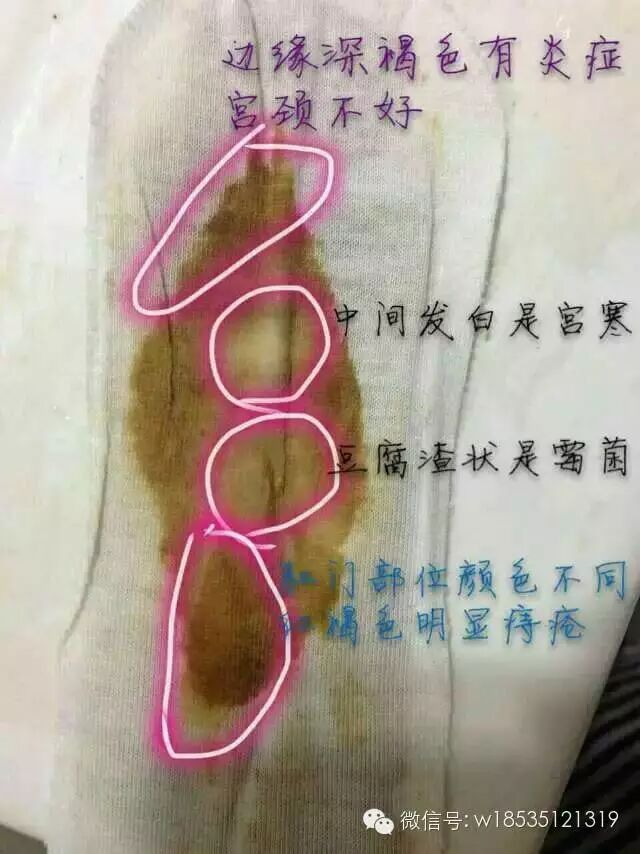 边缘深褐色有炎症
宫颈不好
中间发白是宫寒
豆腐渣状是霉菌
肛门部位颜色不同
红褐色明显痔疮
微信号: w18535121319